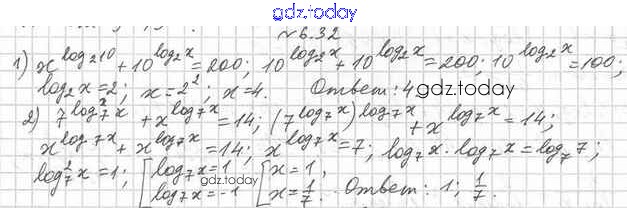 gdz.today
№6.32
1) x^{log_2 10} + 10^{log_2 x} = 200; 10^{log_2 x} + 10^{log_2 x} = 200; 10^{log_2 x} = 100;
log_2 x = 2; x = 2^2; x = 4. Ответ: 4
gdz.today
2) 7^{log_7^2 x} + x^{log_7 x} = 14; (7^{log_7 x})^{log_7 x} + x^{log_7 x} = 14;
x^{log_7 x} + x^{log_7 x} = 14; x^{log_7 x} = 7; log_7 x · log_7 x = log_7 7;
log_7^2 x = 1; [log_7 x = 1 [x = 1,
gdz.today
log_7 x = -1 x = 1/7. Ответ: 1; 1/7.